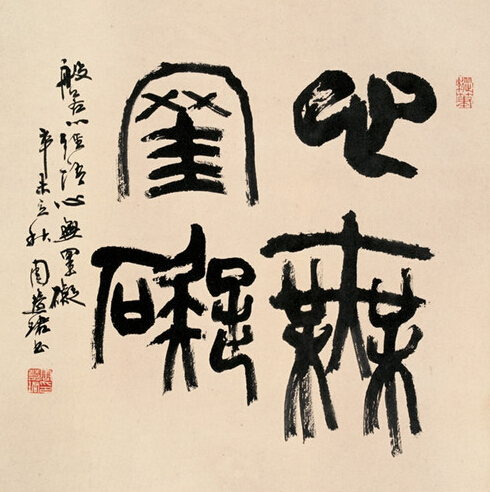 心無
罣礙
般若心經語心無罣礙
辛未立秋周書